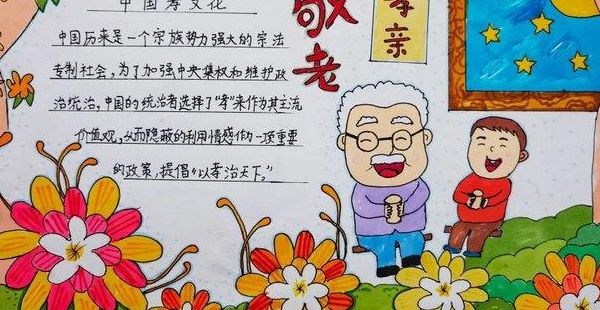 中国孝文化
中国历来是一个宗族势力强大的宗法
专制社会，为了加强中央集权和维护政
治统治，中国的统治者选择了“孝”来作为其主流
价值观，从而隐蔽的利用情感作为一项重要
的政策，提倡“以孝治天下。”
敬老
孝亲